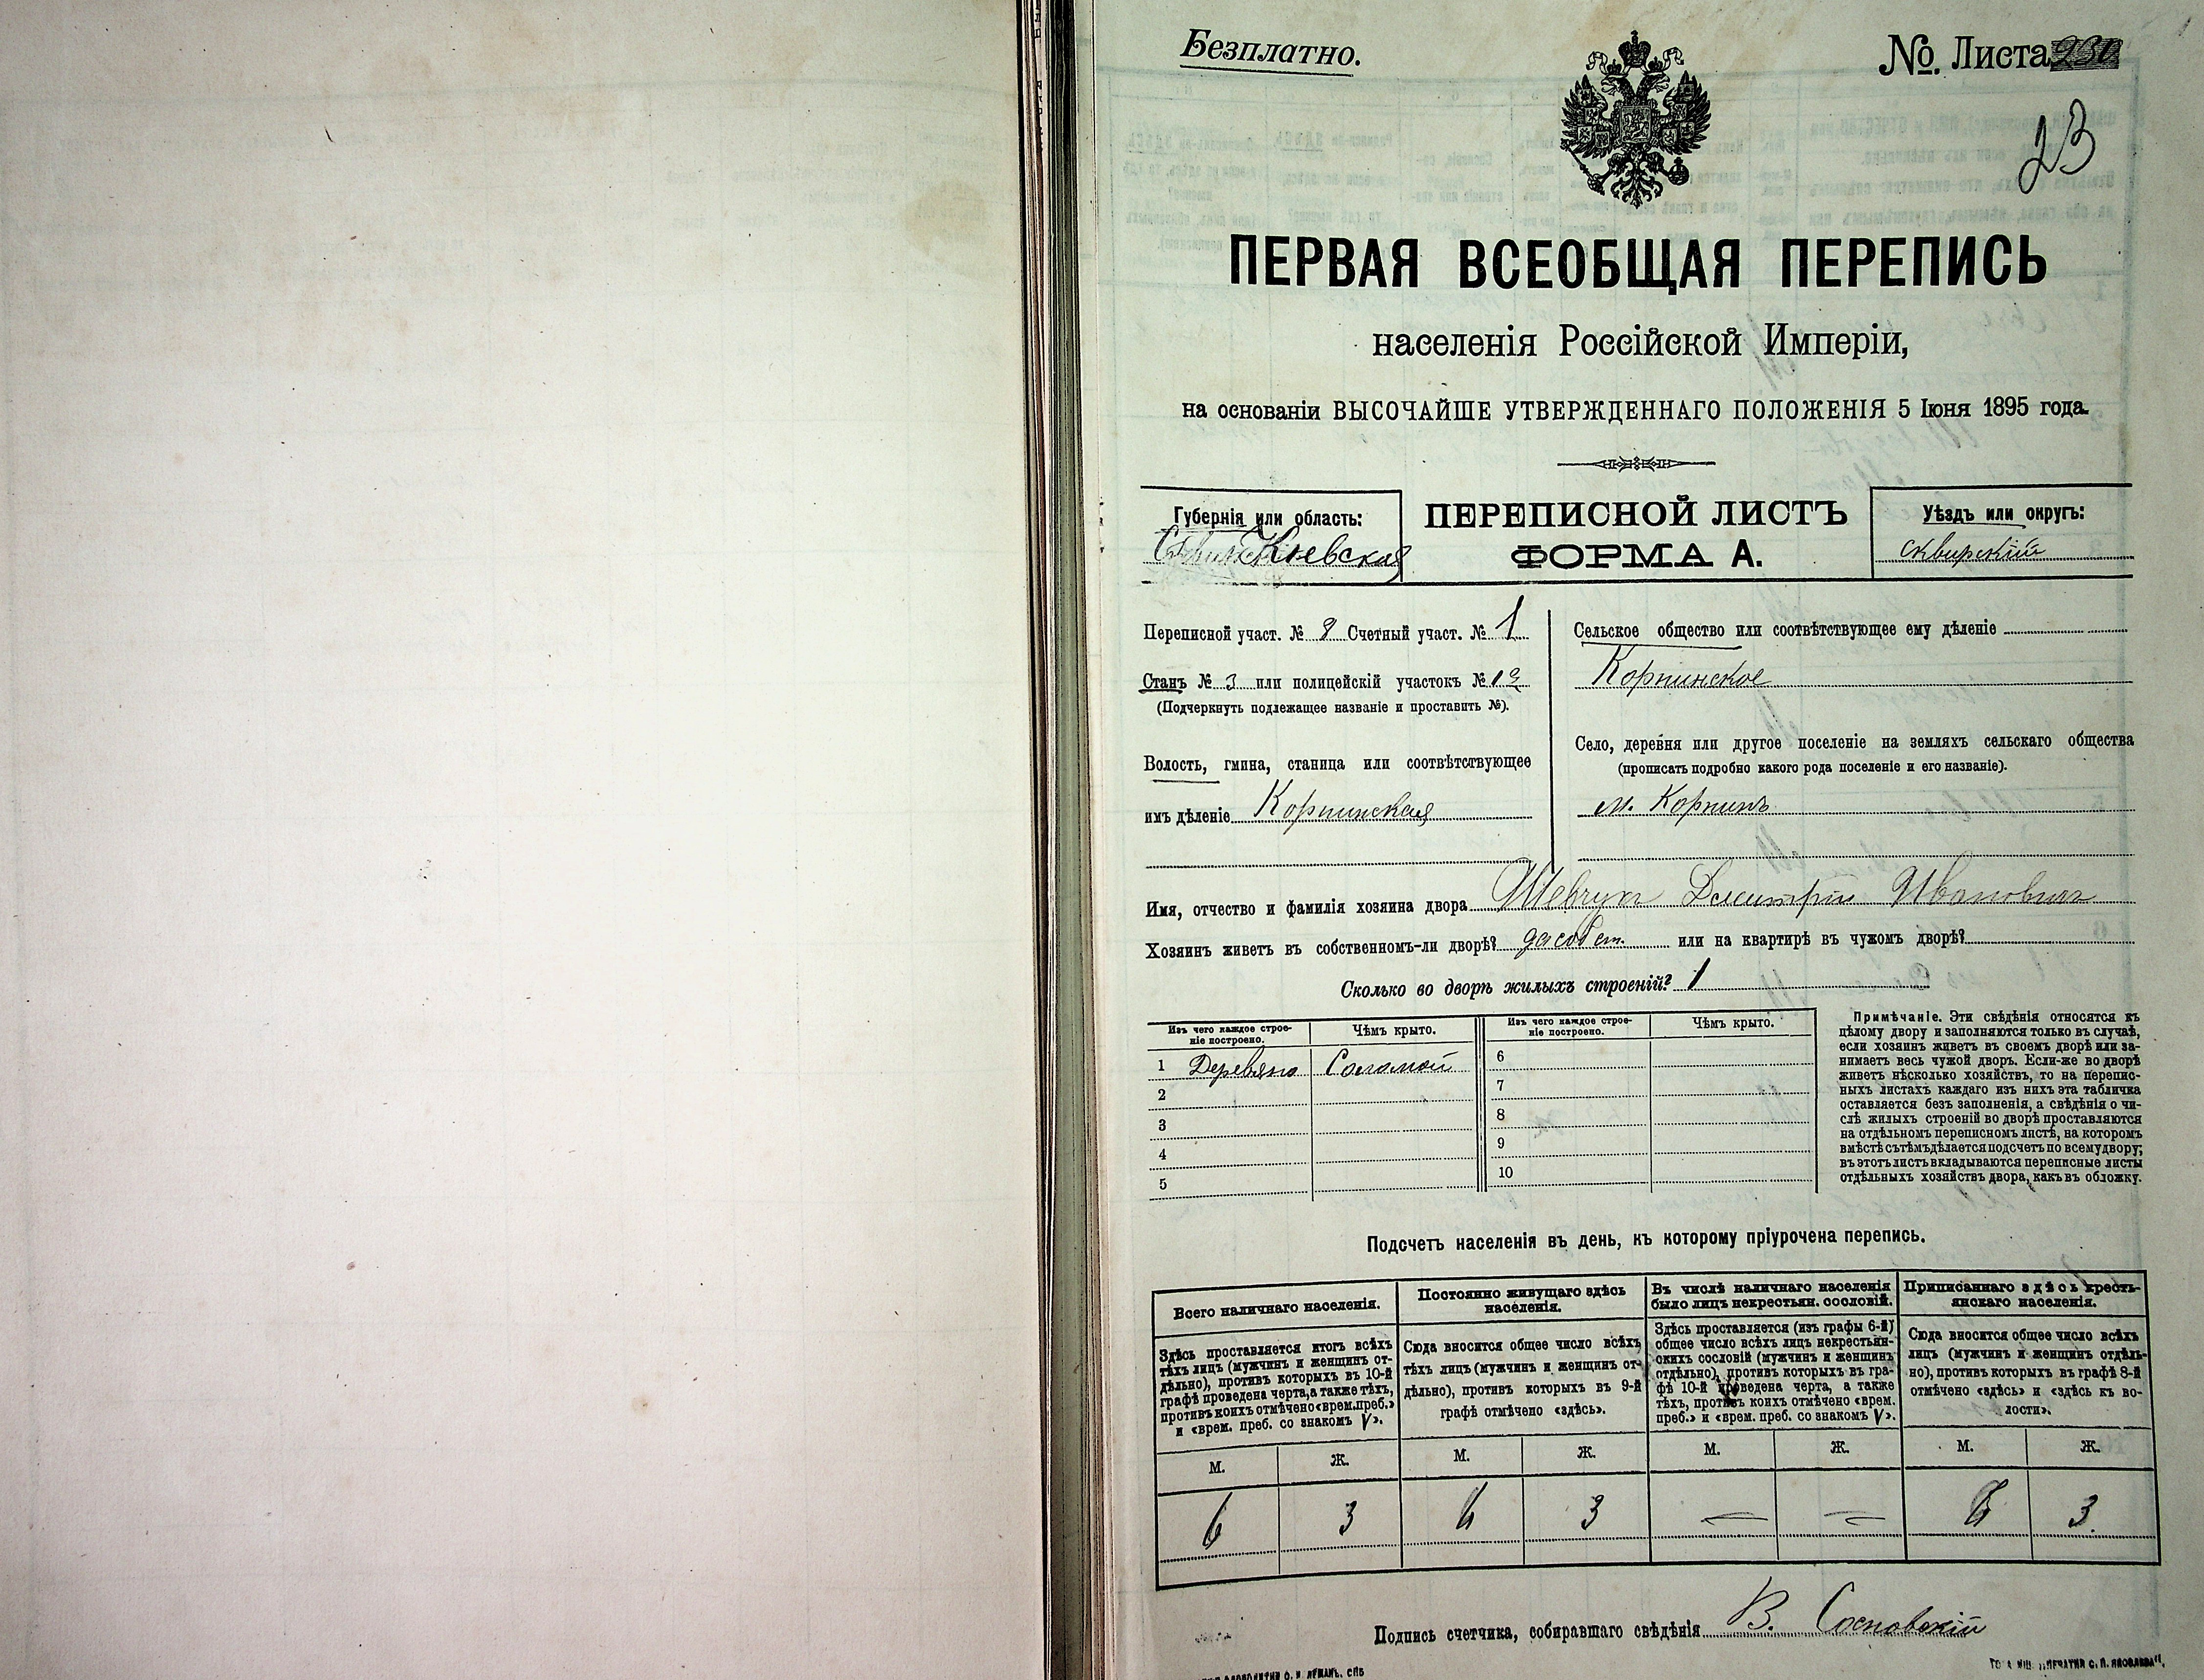 Безплатно.
№ Листа 230
23
ПЕРВАЯ ВСЕОБЩАЯ ПЕРЕПИСЬ
населенія Россійской Имперіи,
на основаніи ВЫСОЧАЙШЕ УТВЕРЖДЕННАГО ПОЛОЖЕНІЯ 5 Іюня 1895 года.
Губернія или область:
Кіевская
ПЕРЕПИСНОЙ ЛИСТЪ
ФОРМА А.
Уѣздъ или округъ:
сквирскій
Переписной участ. № 8 Счетный участ. № 1
Станъ № 3 или полицейскій участокъ №
(Подчеркнуть подлежащее названіе и проставить №).
Волость, гмина, станица или соотвѣтствующее
имъ дѣленіе Корнинская
Сельское общество или соотвѣтствующее ему дѣленіе
Корнинское
Село, деревня или другое поселеніе на земляхъ сельскаго общества
(прописать подробно какого рода поселеніе и его названіе).
м. Корнинъ
Имя, отчество и фамилія хозяина двора Шевчукъ Дмитрій Ивановичъ
Хозяинъ живетъ въ собственномъ-ли дворѣ? да собст. или на квартирѣ въ чужомъ дворѣ?
Сколько во дворѣ жилыхъ строеній? 1
Изъ чего каждое строе-
ніе построено.
Чѣмъ крыто.
Изъ чего каждое строе-
ніе построено.
Чѣмъ крыто.
1 Деревяно Соломой
2
3
4
5
6
7
8
9
10
Примѣчаніе. Эти свѣдѣнія относятся къ
цѣлому двору и заполняются только въ случаѣ,
если хозяинъ живетъ въ своемъ дворѣ или за-
нимаетъ весь чужой дворъ. Если-же во дворѣ
живетъ нѣсколько хозяйствъ, то на перепис-
ныхъ листахъ каждаго изъ нихъ эта табличка
оставляется безъ заполненія, а свѣдѣнія о чи-
слѣ жилыхъ строеній во дворѣ проставляются
на отдѣльномъ переписномъ листѣ, на которомъ
вмѣстѣ съ тѣмъ дѣлается подсчетъ по всему двору;
въ этотъ листъ вкладываются переписные листы
отдѣльныхъ хозяйствъ двора, какъ въ обложку.
Подсчетъ населенія въ день, къ которому пріурочена перепись.
Всего наличнаго населенія.
Здѣсь проставляется итогъ всѣхъ
тѣхъ лицъ (мужчинъ и женщинъ от-
дѣльно), противъ которыхъ въ 10-й
графѣ проведена черта, а также тѣхъ,
противъ коихъ отмѣчено «врем. преб.»
и «врем. преб. со знакомъ V».
М. Ж.
6 3
Постоянно живущаго здѣсь
населенія.
Сюда вносится общее число всѣхъ
тѣхъ лицъ (мужчинъ и женщинъ от-
дѣльно), противъ которыхъ въ 9-й
графѣ отмѣчено «здѣсь».
М. Ж.
6 3
Въ числѣ наличнаго населенія
было лицъ некрестьян. сословій.
Здѣсь проставляется (изъ графы 6-й)
общее число всѣхъ лицъ некрестьян-
скихъ сословій (мужчинъ и женщинъ
отдѣльно), противъ которыхъ въ гра-
фѣ 10-й проведена черта, а также
тѣхъ, противъ коихъ отмѣчено «врем.
преб.» и «врем. преб. со знакомъ V».
М. Ж.
— —
Приписаннаго здѣсь кресть-
янскаго населенія.
Сюда вносится общее число всѣхъ
лицъ (мужчинъ и женщинъ отдѣль-
но), противъ которыхъ въ графѣ 8-й
отмѣчено «здѣсь» и «здѣсь къ во-
лости».
М. Ж.
6 3.
Подпись счетчика, собиравшаго свѣдѣнія В. Сосновскій